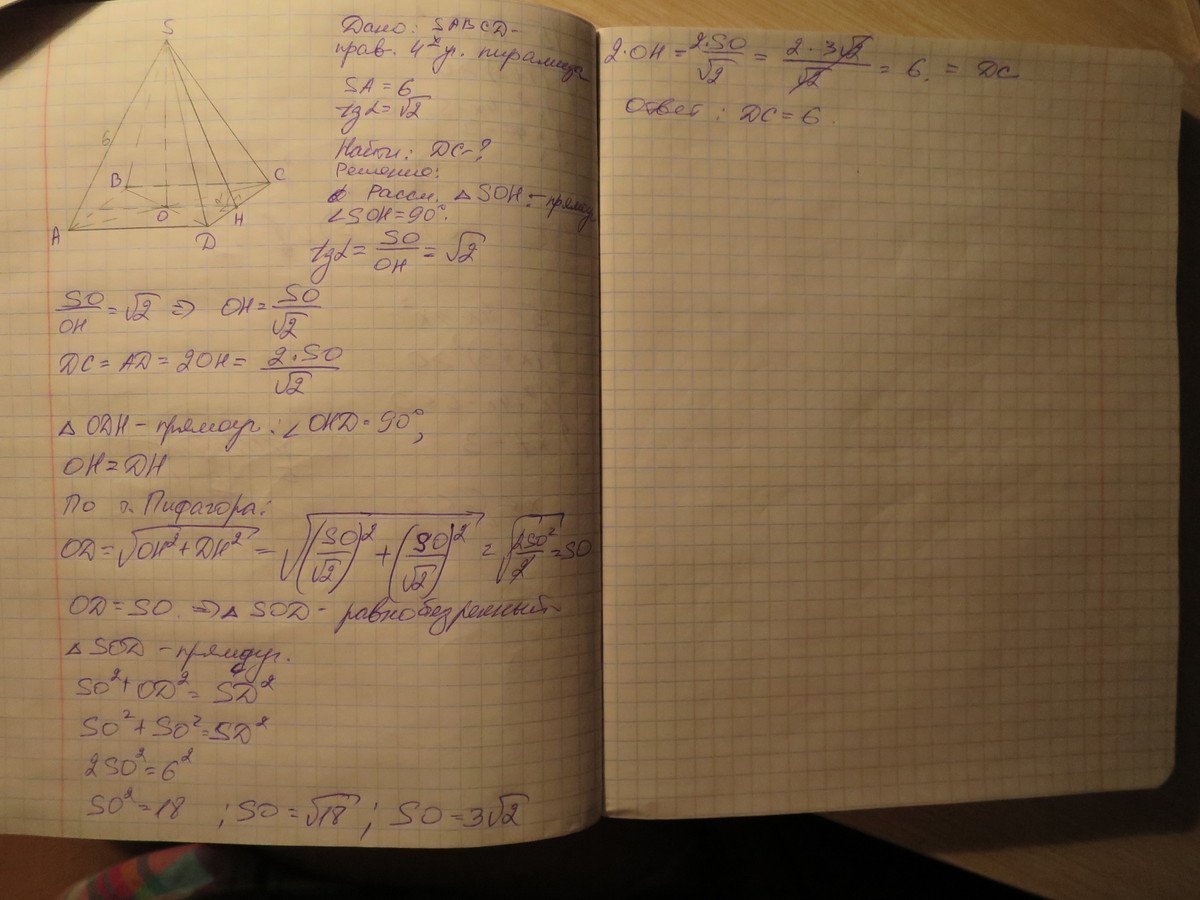 S
6
B
C
A
O
D
H
α
Дано: SABCD-
прав. 4х у. пирамида
SA = 6
tgα = √2
Найти: DC-?
Решение:
Рассм. △ SOH: - прямоуг
∠SOH = 90°.
tgα = SO/OH = √2
SO/OH = √2 ⇒ OH = SO/√2
DC = AD = 2OH = 2·SO/√2
△ ODH - прямоуг.: ∠OHD = 90°,
OH = DH
По т. Пифагора:
OD = √(OH² + DH²) = √((SO/√2)² + (SO/√2)²) = √(2SO²/2) = SO
OD = SO. ⇒ △ SOD - равнобедренный
△ SOD - прямоуг.
SO² + OD² = SD²
SO² + SO² = SD²
2SO² = 6²
SO² = 18 ; SO = √18 ; SO = 3√2
2·OH = 2·SO/√2 = 2·3√2/√2 = 6. = DC
Ответ: DC = 6.